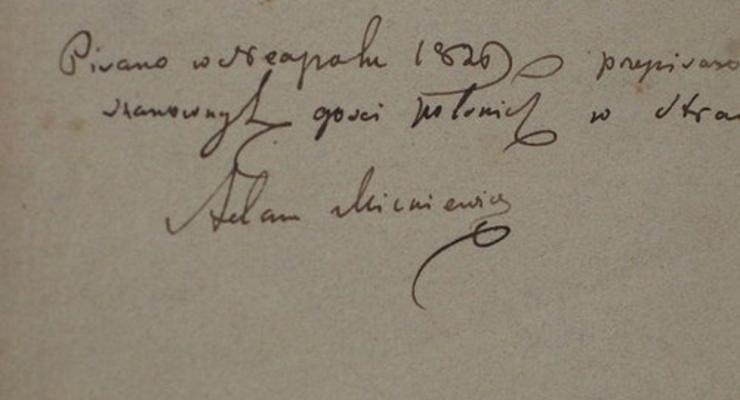 Pisano w Neapolu 1820 przepisano
szanownych gości polskich w
Adam Mickiewicz